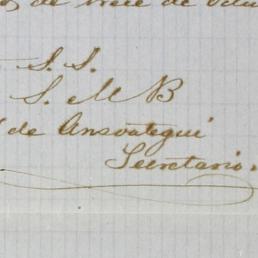 de trece de
S. S.
S. M B
de Ansoategui
Secretario.